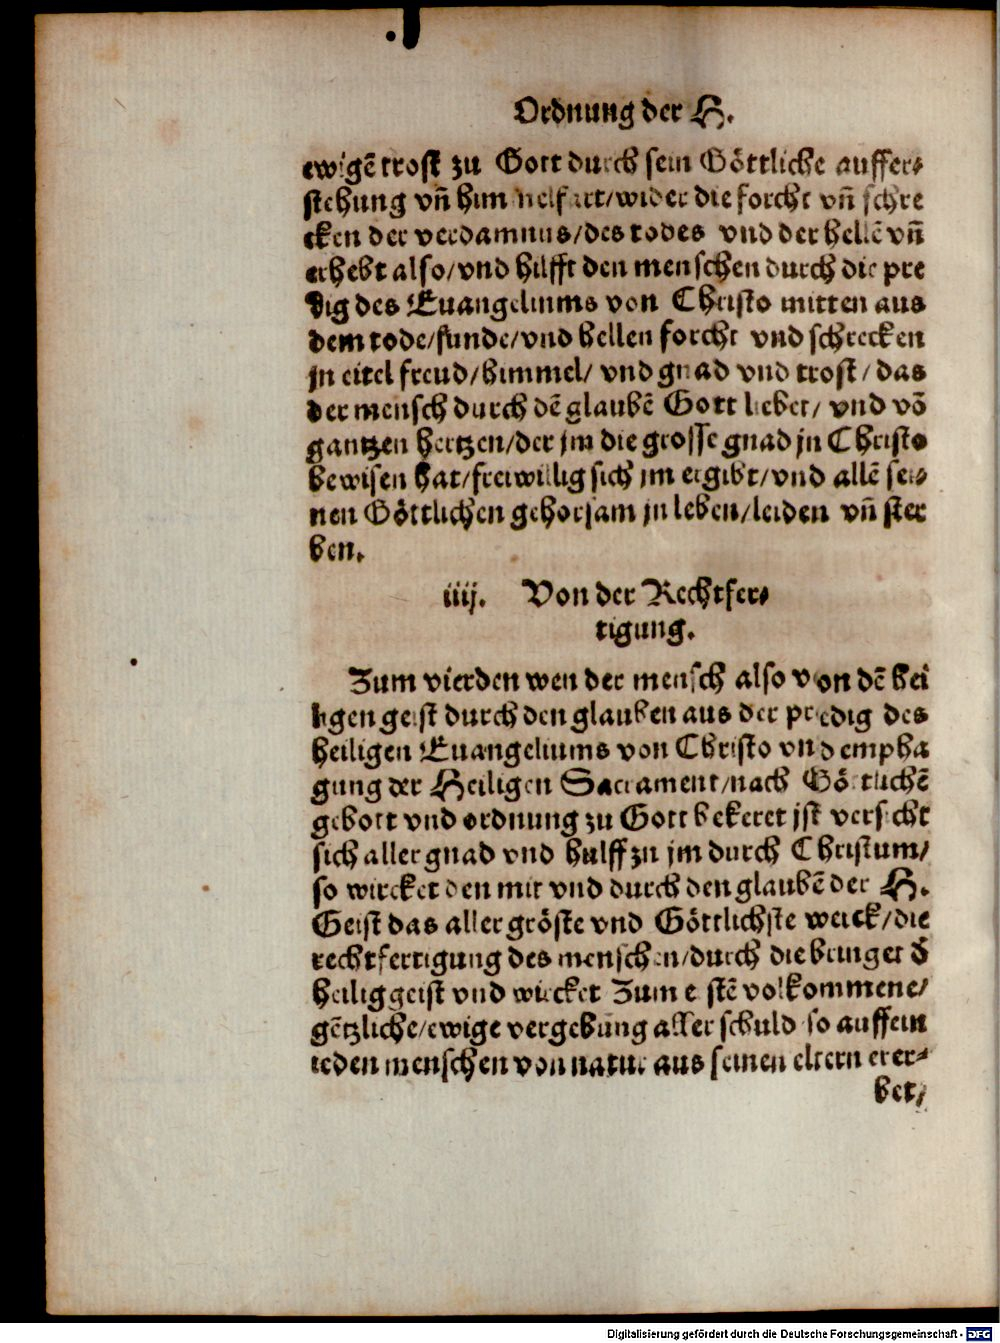 Ordnung der H.
ewigē trost zu Gott durch sein Göttliche auffer⸗
stehung vñ himmelfart/wider die forcht vñ schre
cken der verdamnus/des todes vnd der hellē vñ
erhebt also/vnd hilfft den menschen durch die pre
dig des Euangeliums von Christo mitten aus
dem tode/sunde/vnd hellen forcht vnd schrecken
jn eitel freud/himmel/ vnd gnad vnd trost/ das
der mensch durch dē glaubē Gott liebet/ vnd vō
gantzen hertzen/der jm die grosse gnad jn Christo
bewisen hat/freiwillig sich jm ergibt/vnd allē sei⸗
nen Göttlichen gehorsam jn leben/leiden vñ ster
ben.
iiij. Von der Rechtfer⸗
tigung.
Zum vierden wen der mensch also von dē hei
ligen geist durch den glauben aus der predig des
heiligen Euangeliums von Christo vnd empha
gung der Heiligen Sacrament/nach Göttlichē
gebott vnd ordnung zu Gott bekeret jst versicht
sich aller gnad vnd hulff zu jm durch Christum/
so wircket den mit vnd durch den glaubē der H.
Geist das aller gröste vnd Göttlichste werck/die
rechtfertigung des menschen/durch die bringet d̄
heilig geist vnd wircket Zum erstē volkommene/
gētzliche/ewige vergebung aller schuld so auff ein
ieden menschen von natur aus seinen eltern erer⸗
bet/
Digitalisierung gefördert durch die Deutsche Forschungsgemeinschaft - DFG